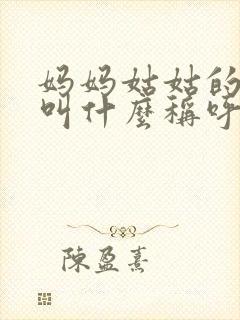 妈妈姑姑的
叫什麼稱呼
陳盈熹